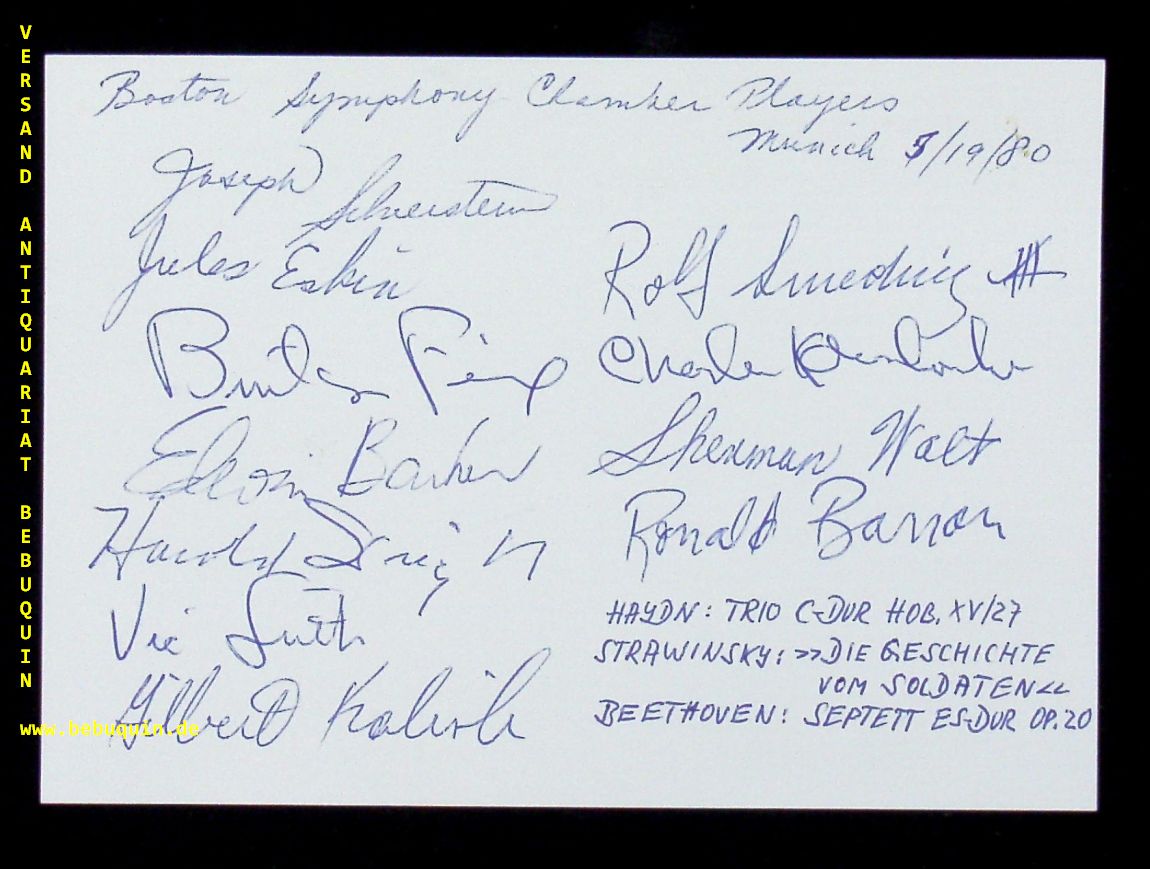 Boston Symphony Chamber Players
Munich 5/19/80
Joseph Silverstein
Jules Eskin
Burton Fine
Edwin Barker
Harold Wright
Vic Firth
Gilbert Kalish
Rolf Smedvig
Charles Kavalovski
Sherman Walt
Ronald Barron
HAYDN: TRIO C-DUR HOB. XV/27
STRAWINSKY: >>DIE GESCHICHTE
VOM SOLDATEN<<
BEETHOVEN: SEPTETT ES-DUR OP. 20
VERSAND ANTIQUARIAT BEBUQUIN
www.bebuquin.de